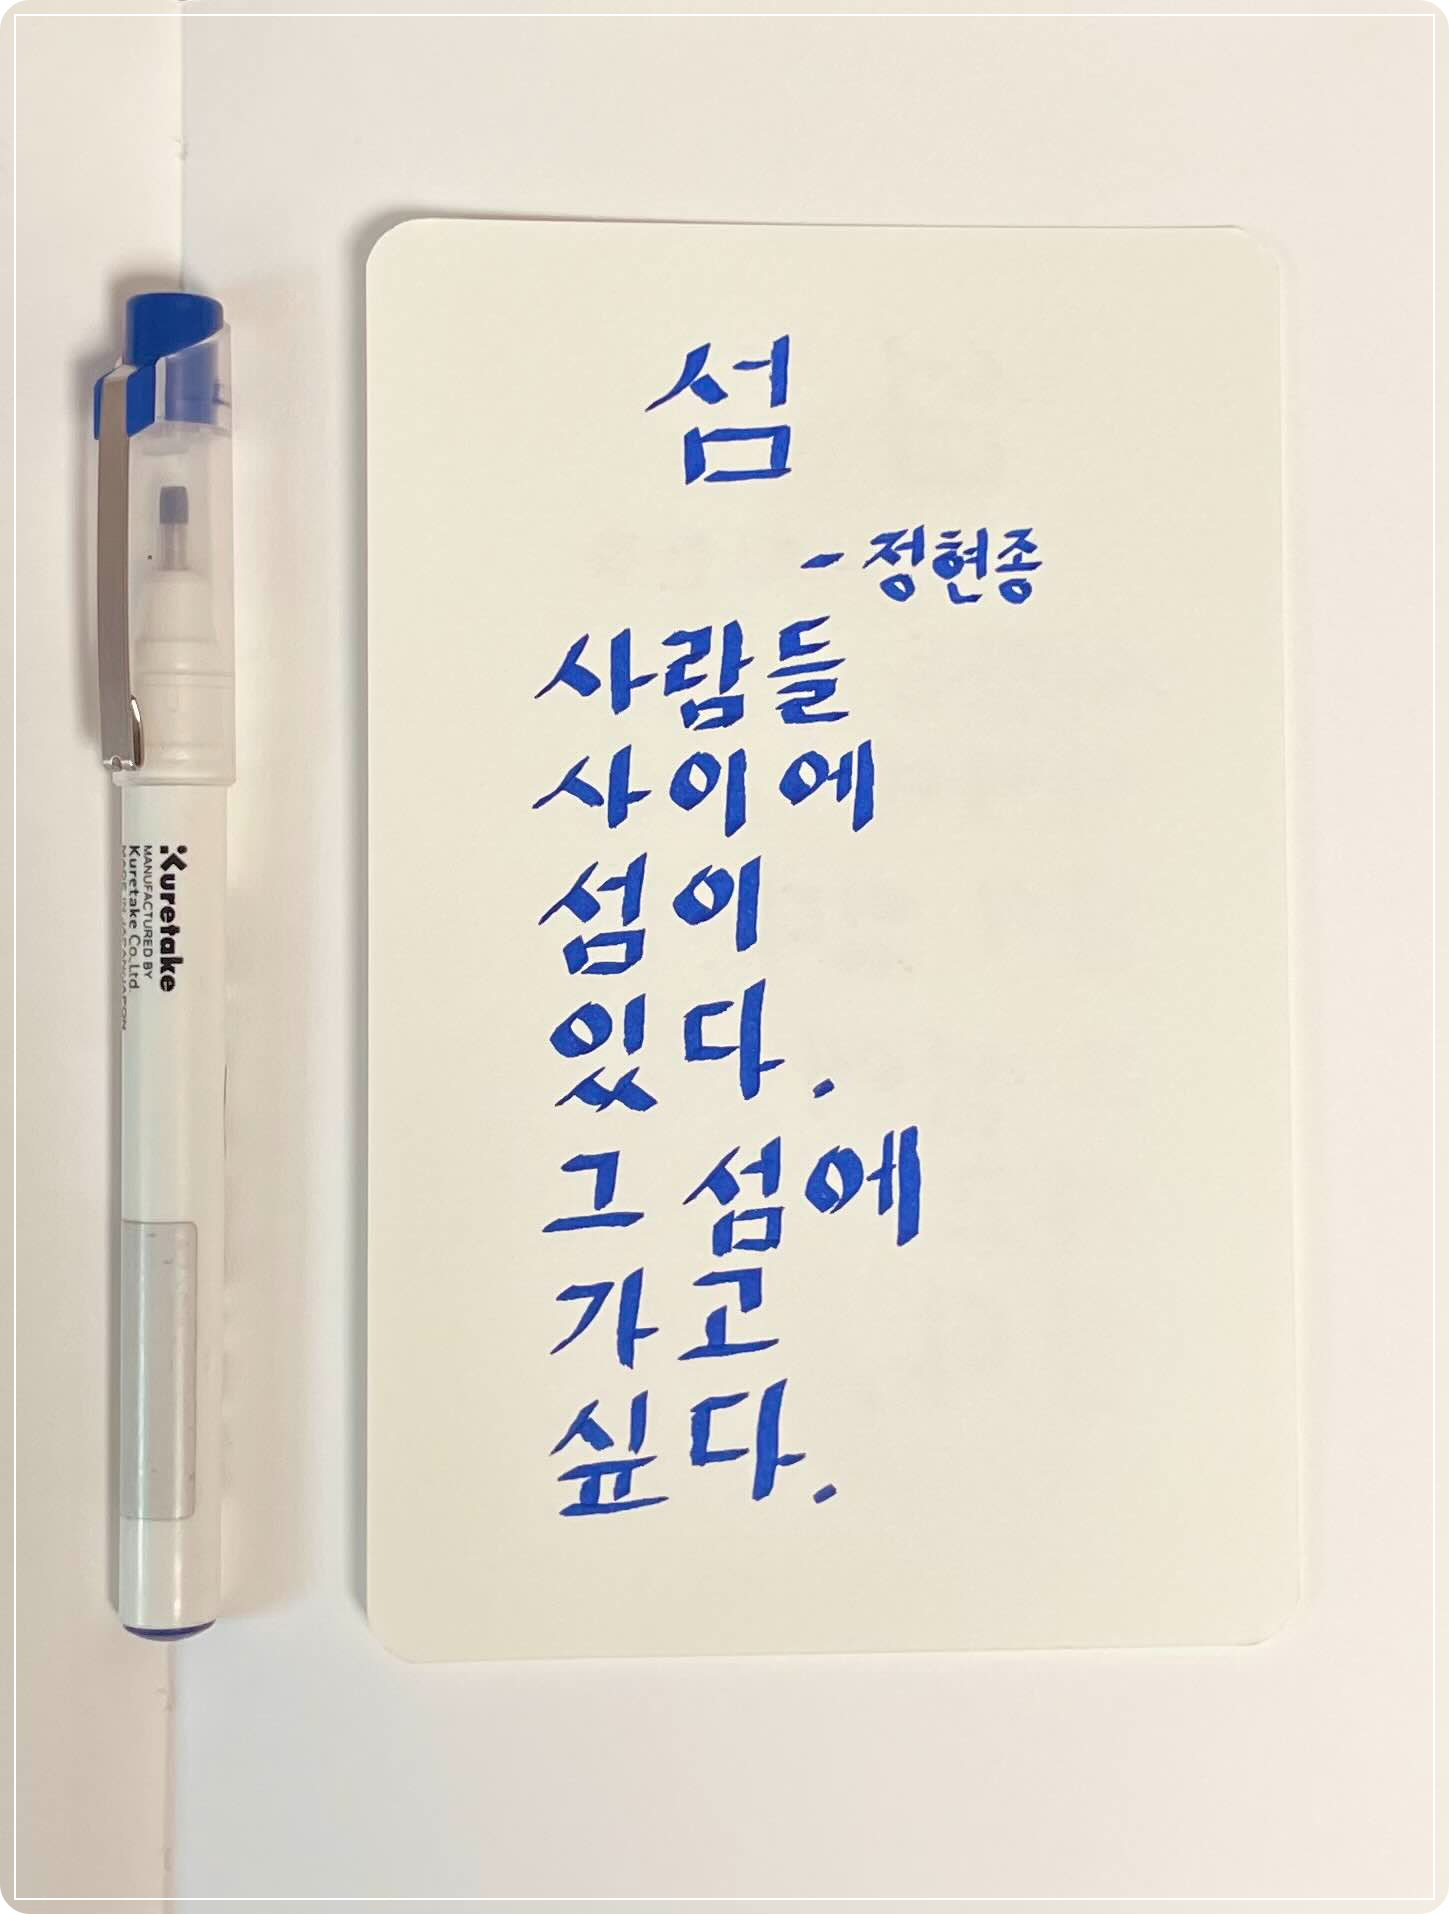 섬
- 정현종
사람들
사이에
섬이
있다.
그 섬에
가고
싶다.
Kuretake
MANUFACTURED BY
Kuretake Co.,Ltd.
MADE IN JAPAN/JAPON